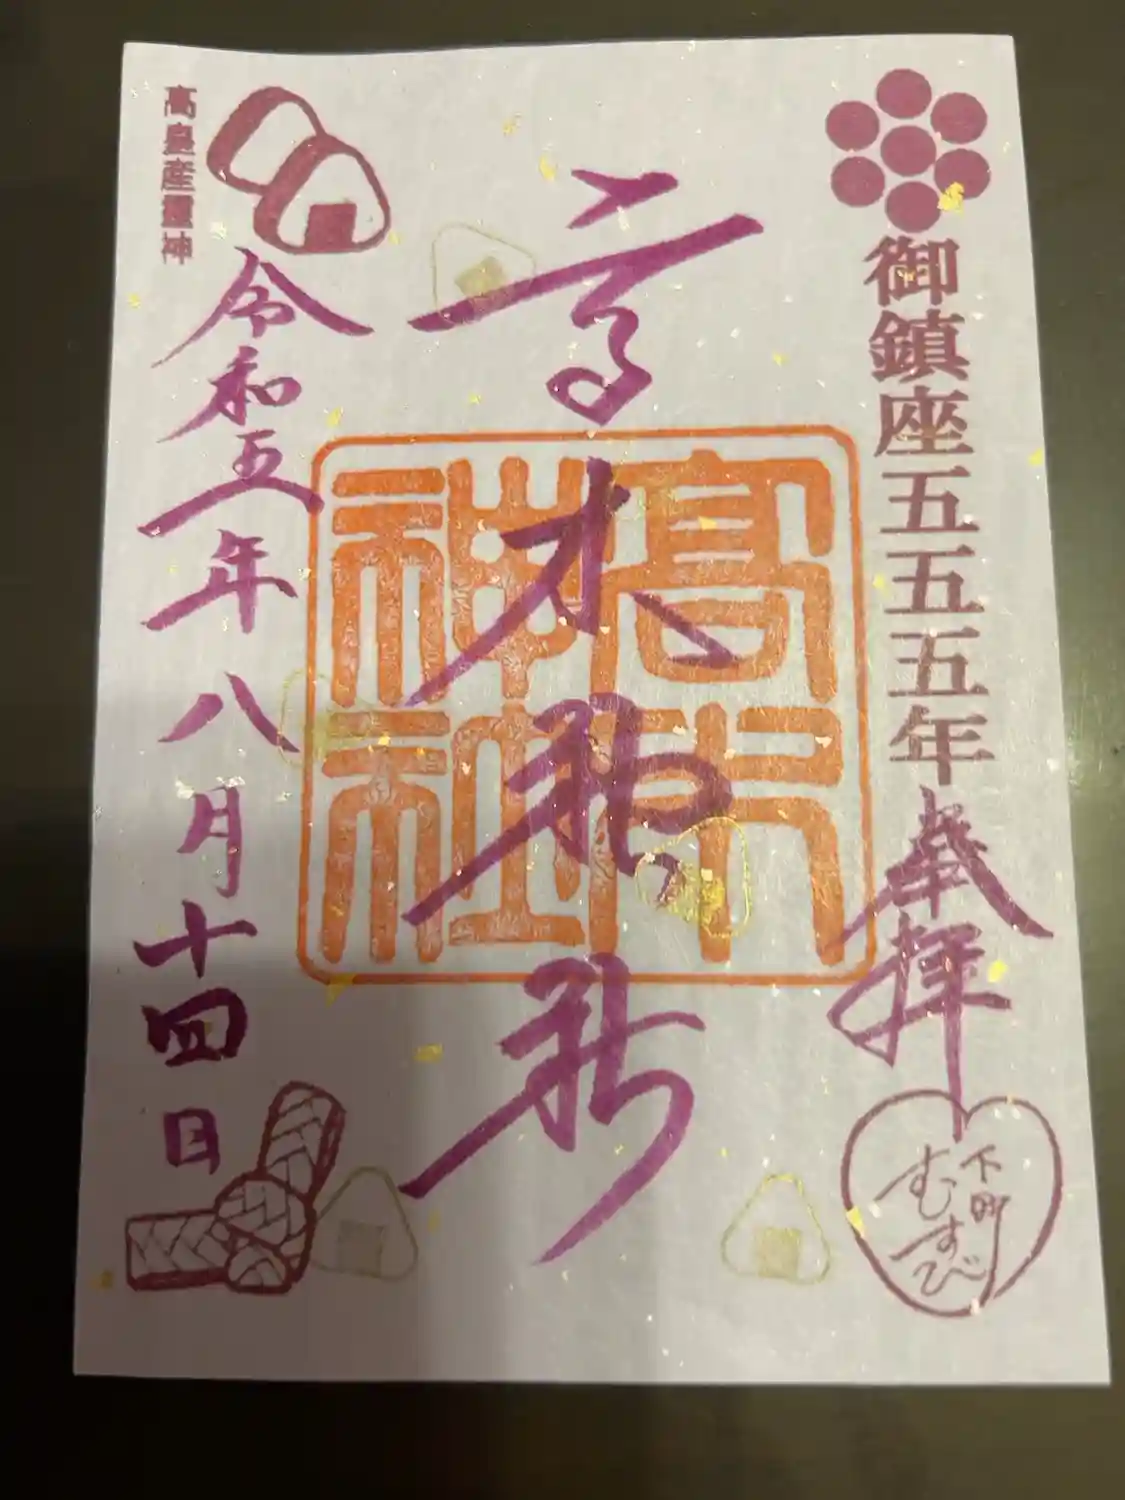 御鎮座五五五年
奉拝
下町
むすび
高木神社
高木
神社
高皇産靈神
令和五年八月十四日